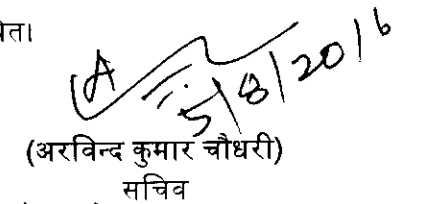 5/8/2016
(अरविन्द कुमार चौधरी)
सचिव